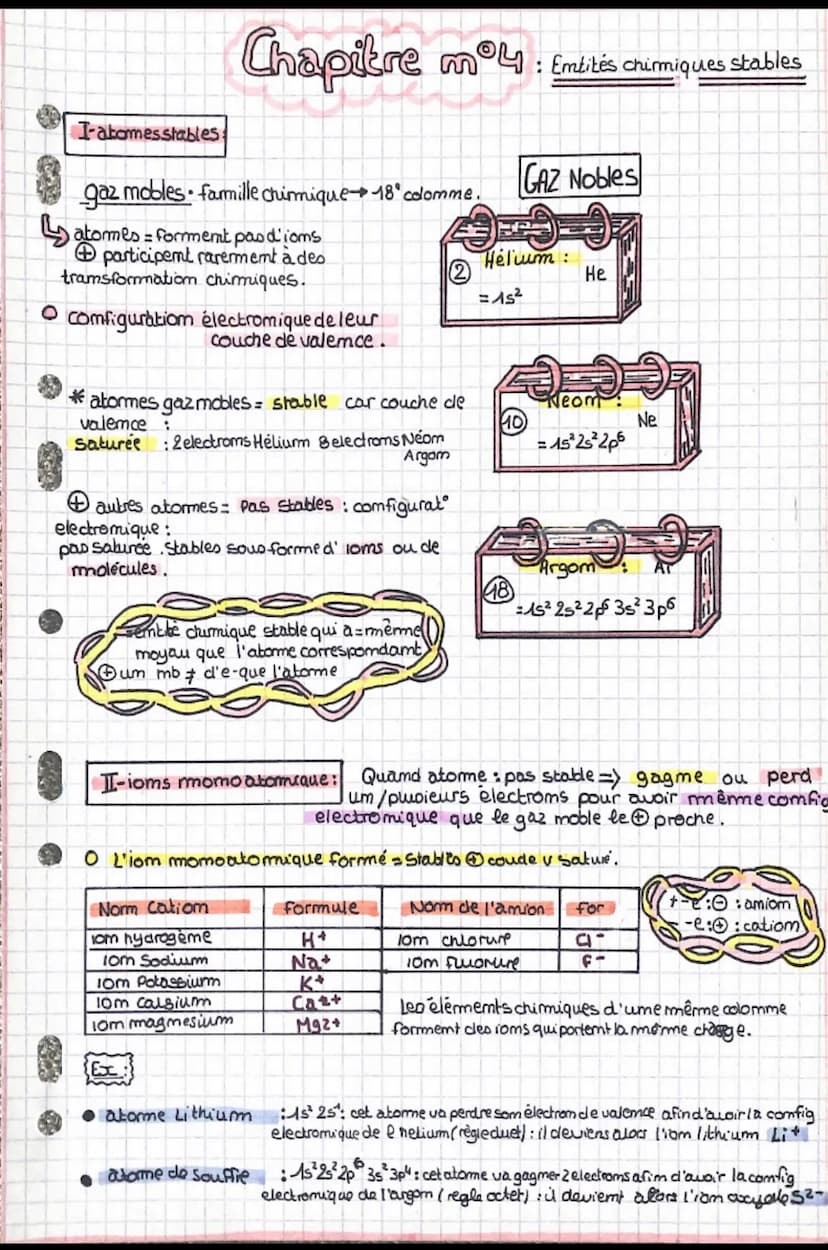 Chapitre n°4 : Entités chimiques stables
I-atomes stables:
gaz nobles • famille chimique → 18° colonne.
GAZ NOBLES
↳ atomes = forment pas d'ions
⊕ participent rarement à des
transformation chimiques.
Hélium :
② He
= 1s²
configuration électronique de leur
couche de valence.
* atomes gaz nobles = stable car couche de
valence :
saturée : 2 electrons Hélium 8 electrons Néon
Argon
Néon :
⑩ Ne
= 1s² 2s² 2p⁶
⊕ autres atomes = pas stables : configurat°
electronique :
pas saturée. Stables sous forme d' ions ou de
molécules.
Argon : Ar
⑱
= 1s² 2s² 2p⁶ 3s² 3p⁶
= entité chimique stable qui a = même
noyau que l'atome correspondant
⊕ un nb ≠ d'e- que l'atome
II-ions monoatomique: Quand atome : pas stable => gagne ou perd
un/plusieurs électrons pour avoir même config
electronique que le gaz noble le ⊕ proche.
○ L'ion monoatomique formé = stables ⊕ couche v saturé.
Nom Cation formule Nom de l'anion for
ion hydrogème H⁺ ion chlorure Cl⁻
ion Sodium Na⁺ ion fluorure F⁻
ion Potassium K⁺
ion calsium Ca²⁺
ion magnesium Mg2+
+ -e :⊖ : anion
- -e :⊕ : cation
Les éléments chimiques d'une même colonne
forment des ions qui portent la même charge.
Ex :
• atome Lithium : 1s² 2s¹ : cet atome va perdre son électron de valence afin d'avoir la config
electronique de l'helium (règle duet) : il deviens alors l'ion lithium Li⁺
• atome de souffre : 1s² 2s² 2p⁶ 3s² 3p⁴ : cet atome va gagner 2 electrons afin d'avoir la config
electronique de l'argon (regle octet) : il devient alors l'ion S²⁻